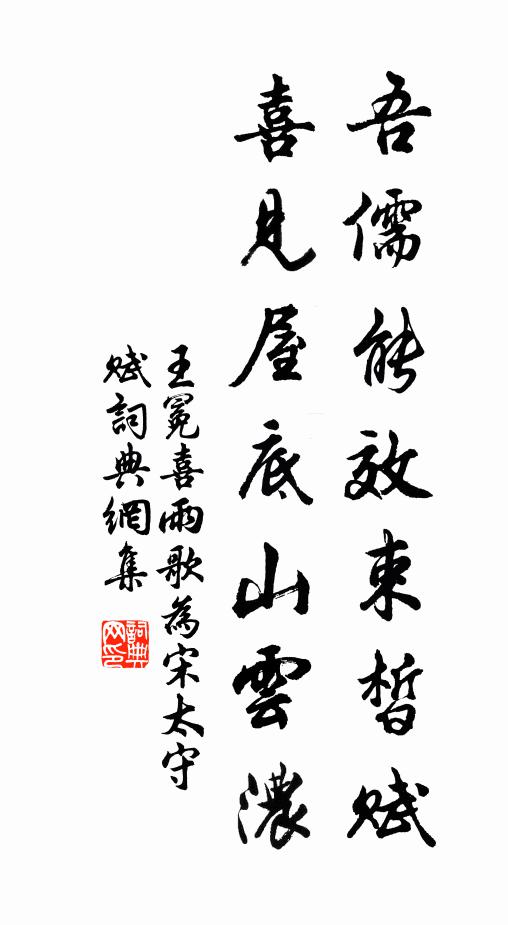 吾儒能效束晳賦
喜見屋底山雲濃
王冕喜雨歌為宋太守
賦詞典網集
詞典網印